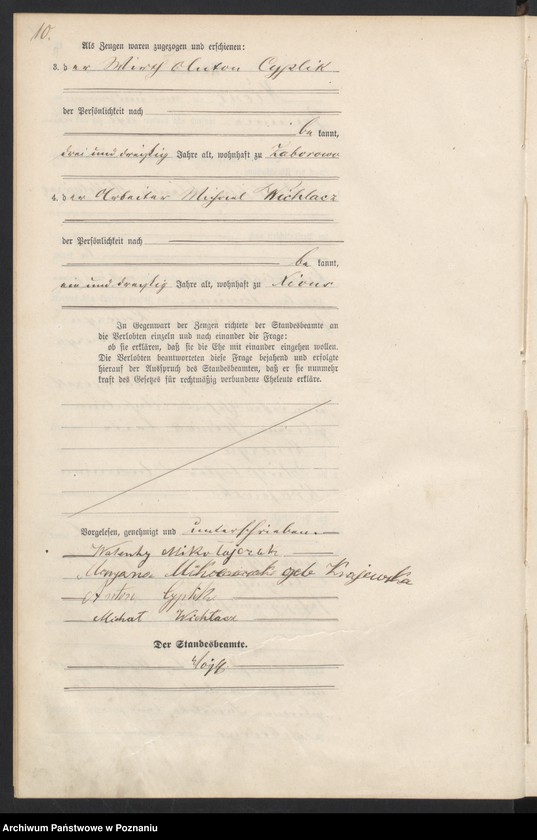 10.
Als Zeugen waren zugezogen und erschienen:
3. der Wirth Anton Cyplik
der Persönlichkeit nach
be kannt,
drei und dreißig Jahre alt, wohnhaft zu Zaborowo
4. der Arbeiter Michael Wichlacz
der Persönlichkeit nach
be kannt,
ein und dreißig Jahre alt, wohnhaft zu Xions
In Gegenwart der Zeugen richtete der Standesbeamte an
die Verlobten einzeln und nach einander die Frage:
ob sie erklären, daß sie die Ehe mit einander eingehen wollen.
Die Verlobten beantworteten diese Frage bejahend und erfolgte
hierauf der Ausspruch des Standesbeamten, daß er sie nunmehr
kraft des Gesetzes für rechtmäßig verbundene Eheleute erkläre.
Vorgelesen, genehmigt und unterschrieben.
Walenty Mikołajczak
geb Krajewska
Anton Cyplik
Michał Wichłacz
Der Standesbeamte.
Archiwum Państwowe w Poznaniu